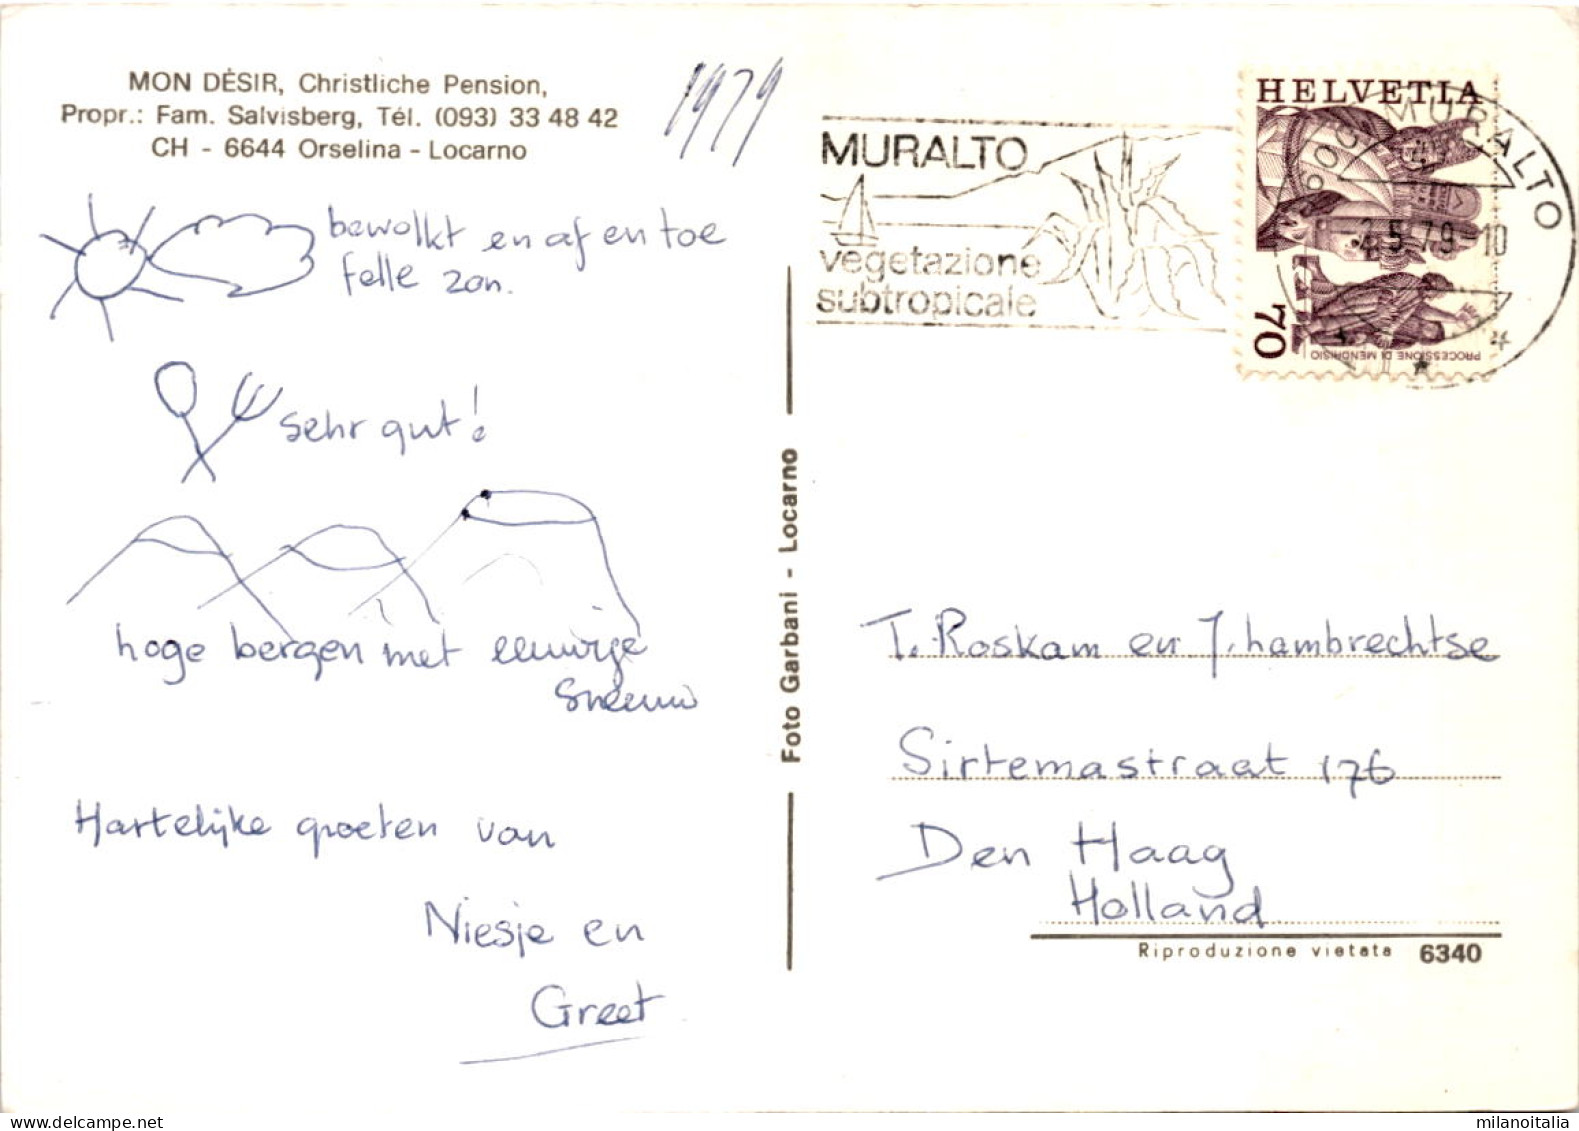 MON DÉSIR, Christliche Pension,
Propr.: Fam. Salvisberg, Tél. (093) 33 48 42
CH - 6644 Orselina - Locarno
1979
bewolkt en af en toe
felle zon.
sehr gut!
hoge bergen met eeuwige
sneeuw
Hartelijke groeten van
Niesje en
Greet
Foto Garbani - Locarno
MURALTO
vegetazione
subtropicale
HELVETIA
70
PROCESSIONE DI MENDRISIO
6600 MURALTO
2.5.79-10
T. Roskam en J. hambrechtse
Sirtemastraat 176
Den Haag
Holland
Riproduzione vietata 6340
milanoitalia